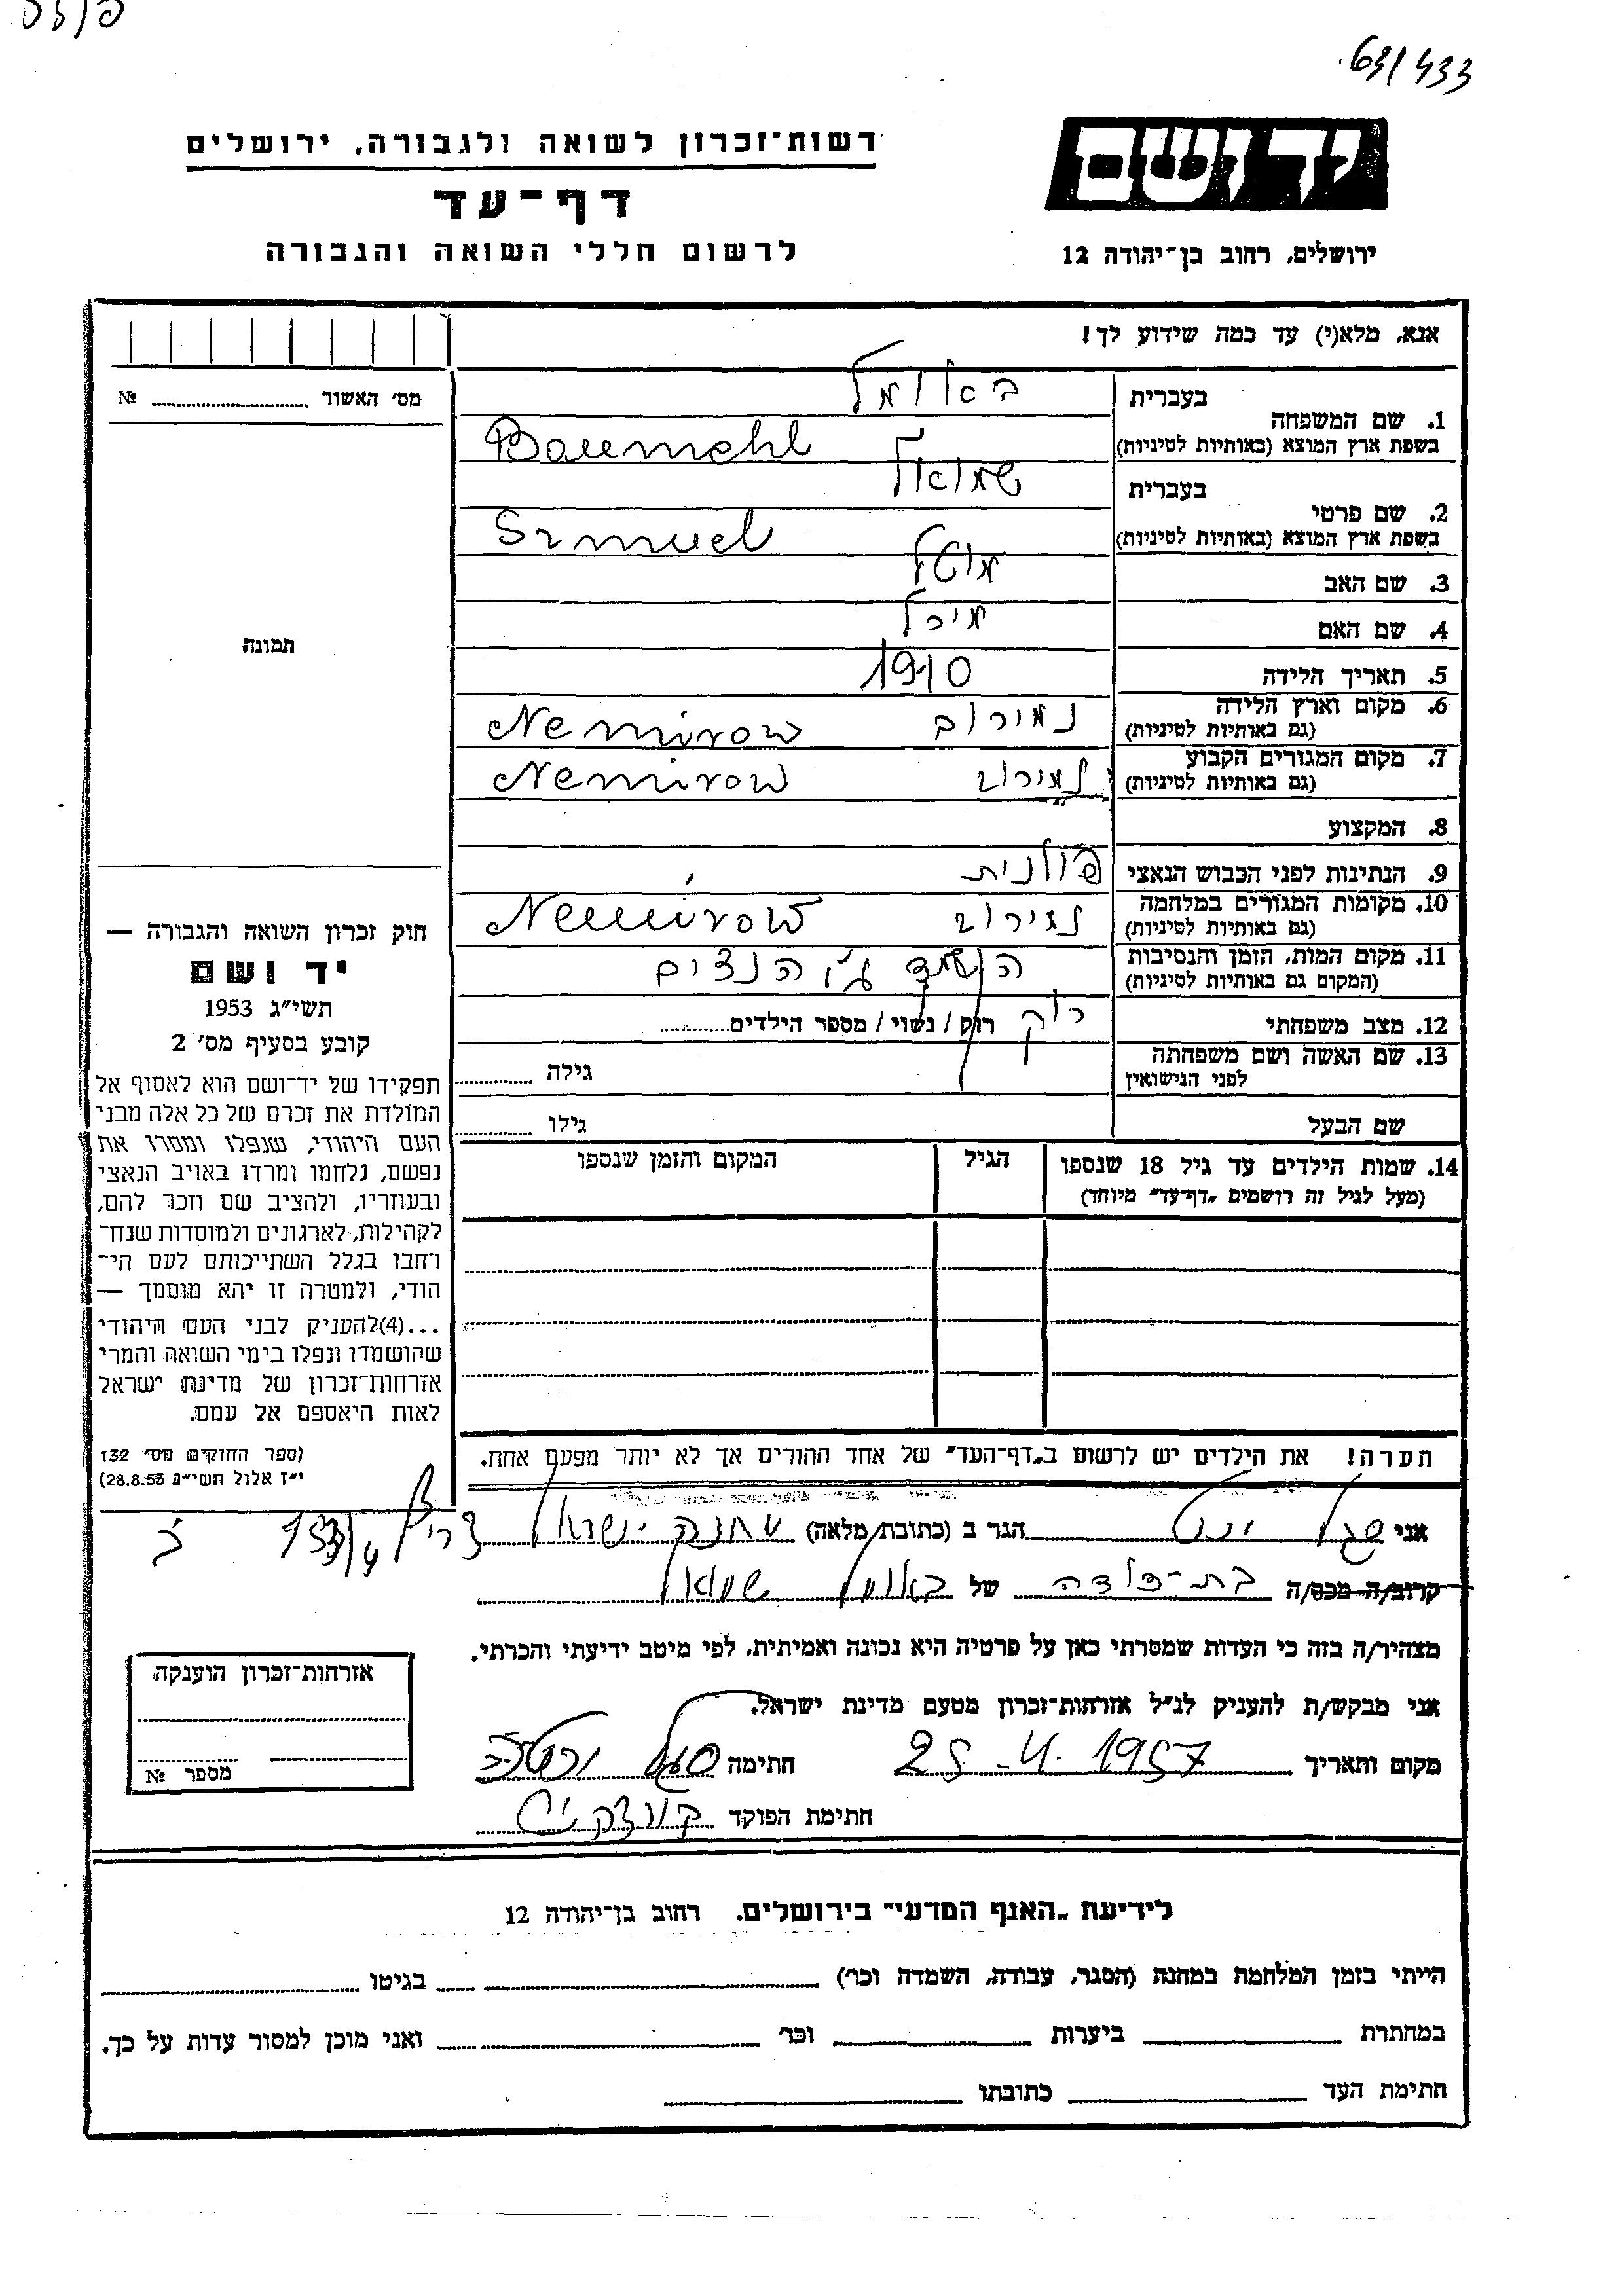 63/433
רשות־זכרון לשואה ולגבורה, ירושלים
דף־עד
לרשום חללי השואה והגבורה
יד ושם
ירושלים, רחוב בן־יהודה 12
אנא, מלא(י) עד כמה שידוע לך!
מס׳ האשור № 
1. שם המשפחה
בעברית באומל
בשפת ארץ המוצא (באותיות לטיניות) Baumehl
2. שם פרטי
בעברית שמואל
בשפת ארץ המוצא (באותיות לטיניות) Szmuel
3. שם האב מוטל
4. שם האם מיכל
5. תאריך הלידה 1910
6. מקום וארץ הלידה נמירוב Nemirow
(גם באותיות לטיניות)
7. מקום המגורים הקבוע נמירוב Nemirow
(גם באותיות לטיניות)
8. המקצוע
9. הנתינות לפני הכבוש הנאצי פולנית
10. מקומות המגורים במלחמה נמירוב Nemirow
(גם באותיות לטיניות)
11. מקום המות, הזמן והנסיבות הנצים
(המקום גם באותיות לטיניות)
12. מצב משפחתי רוק רווק / נשוי / מספר הילדים
13. שם האשה ושם משפחתה
לפני הנישואין
גילה
שם הבעל גילו
14. שמות הילדים עד גיל 18 שנספו הגיל המקום והזמן שנספו
(מעל לגיל זה רושמים „דף־עד״ מיוחד)
הערה! את הילדים יש לרשום ב„דף־העד״ של אחד ההורים אך לא יותר מפעם אחת.
תמונה
חוק זכרון השואה והגבורה —
יד ושם
תשי״ג 1953
קובע בסעיף מס׳ 2
תפקידו של יד־ושם הוא לאסוף אל
המולדת את זכרם של כל אלה מבני
העם היהודי, שנפלו ומסרו את
נפשם, נלחמו ומרדו באויב הנאצי
ובעוזריו, ולהציב שם וזכר להם,
לקהילות, לארגונים ולמוסדות שנח־
רחבו בגלל השתייכותם לעם הי־
הודי, ולמטרה זו יהא מוסמך —
...(4)להעניק לבני העם היהודי
שהושמדו ונפלו בימי השואה והמרי
אזרחות־זכרון של מדינת ישראל
לאות היאספם אל עמם.
(ספר החוקים מס׳ 132
י״ז אלול תשי״ג 28.8.53)
אני הגר ב (כתובת מלאה) ישראל
קרוב/ה מכר/ה בת־דודה של באומל שמואל
מצהיר/ה בזה כי העדות שמסרתי כאן על פרטיה היא נכונה ואמיתית, לפי מיטב ידיעתי והכרתי.
אני מבקש/ת להעניק לנ״ל אזרחות־זכרון מטעם מדינת ישראל.
מקום ותאריך 25-4.1957 חתימה
חתימת הפוקד
אזרחות־זכרון הוענקה
מספר №
לידיעת „האגף המדעי״ בירושלים. רחוב בן־יהודה 12
הייתי בזמן המלחמה במחנה (הסגר, עבודה, השמדה וכו׳) בגיטו
במחתרת ביערות וכו׳ ואני מוכן למסור עדות על כך.
חתימת העד כתובתו